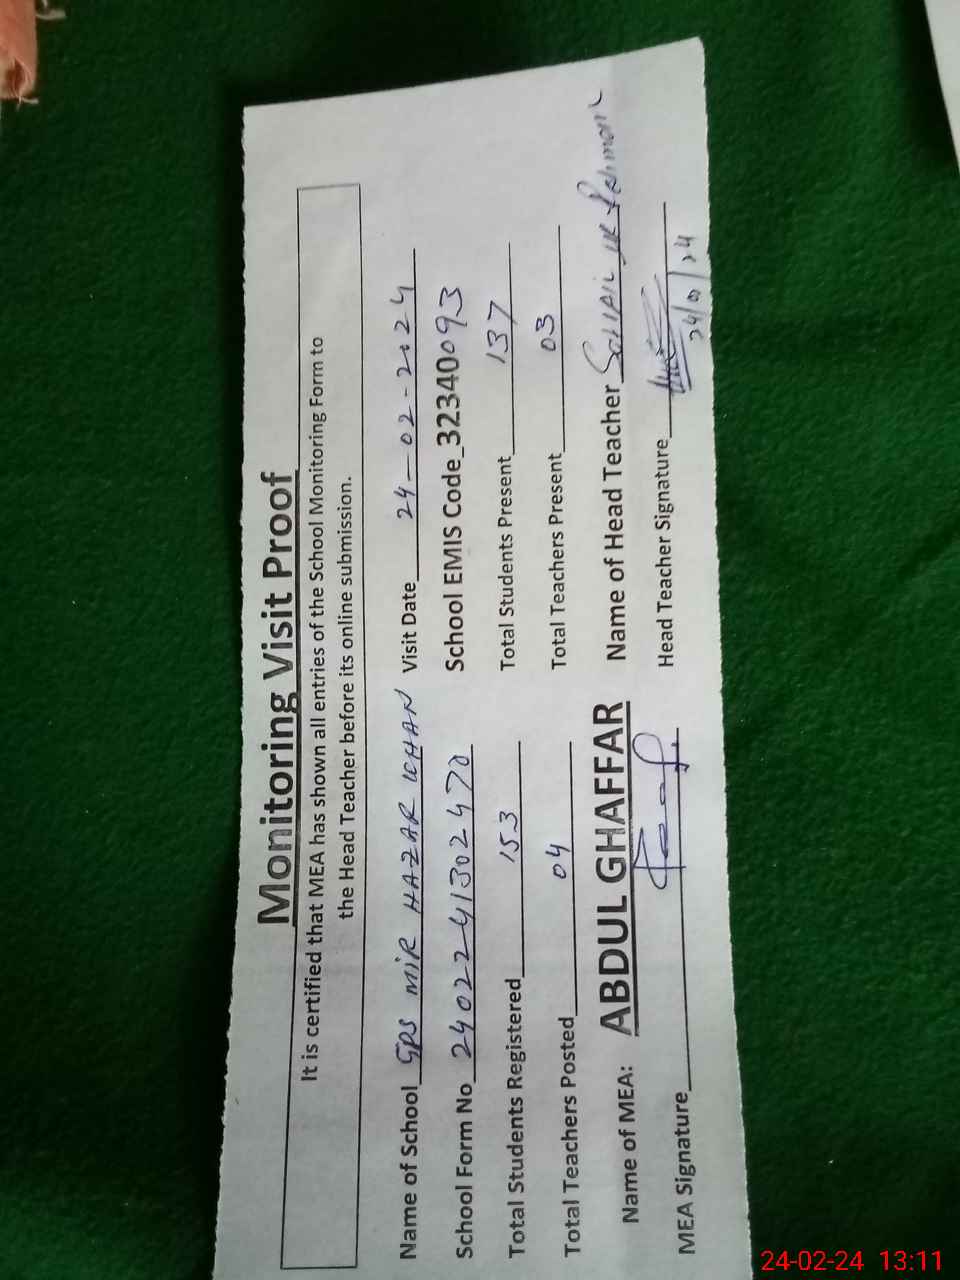 Monitoring Visit Proof
It is certified that MEA has shown all entries of the School Monitoring Form to
the Head Teacher before its online submission.
Name of School GPS MIR HAZAR KHAN Visit Date 24-02-2024
School Form No 24022241302470 School EMIS Code 32340093
Total Students Registered 153 Total Students Present 137
Total Teachers Posted 04 Total Teachers Present 03
Name of MEA: ABDUL GHAFFAR Name of Head Teacher Sohail ur Rehman
MEA Signature Head Teacher Signature
24-02-24 13:11